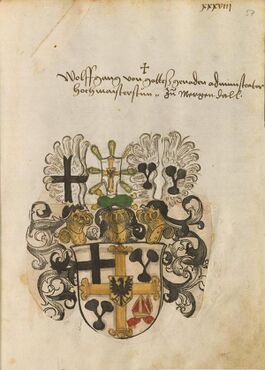 xxxviii
57
Wolffgang von gottes genaden administrator
hochmaisterstim zu Mergendall